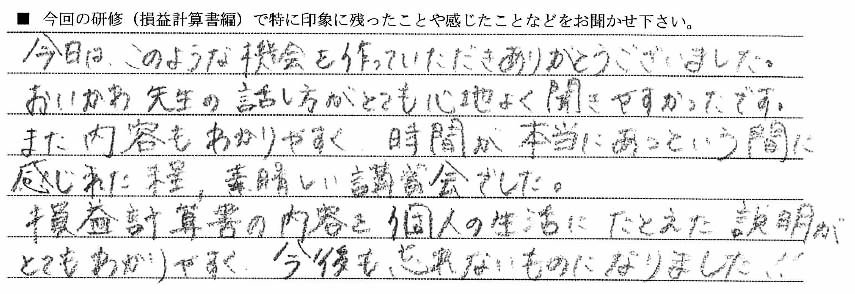 ■ 今回の研修（損益計算書編）で特に印象に残ったことや感じたことなどをお聞かせ下さい。
今日は、このような機会を作っていただきありがとうございました。
おいかわ先生の話し方がとても心地よく聞きやすかったです。
また内容もわかりやすく 時間が本当にあっという間に
感じれた程、素晴しい講習会でした。
損益計算書の内容を個人の生活にたとえた説明が
とてもわかりやすく、今後も忘れないものになりました!!